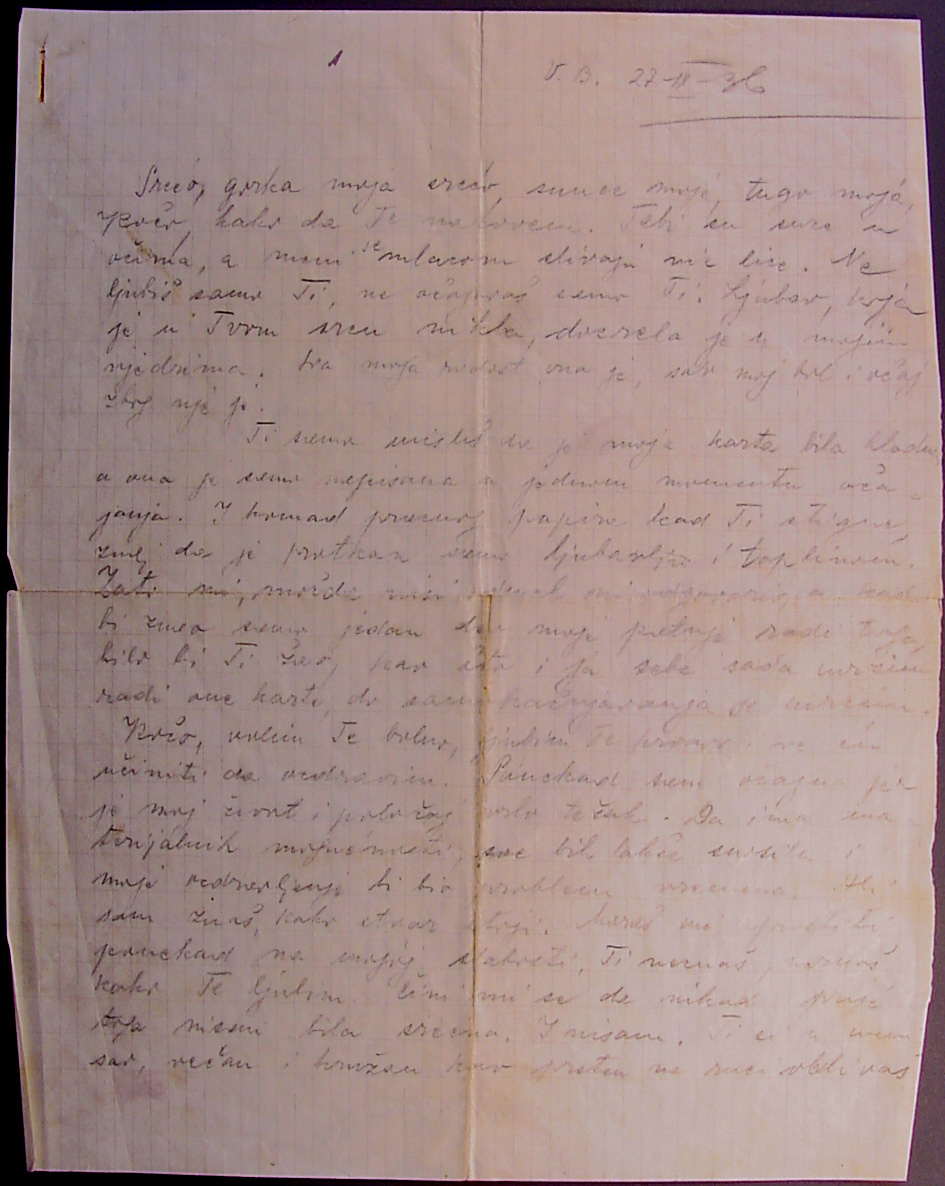 V. B. 27-III-36
Srećo, gorka moja srećo, sunce moje, tugo moja,
Kočo, kako da Te nazovem. Tebi su suze u
očima, a meni se mlazom slivaju niz lice. Ne
ljubiš samo Ti, ne očajavaš samo Ti. Ljubav, koja
je u Tvom srcu nikla, dozrela je u mojim
njedrima. Sva moja radost ona je, sav moj bol i očaj
zbog nje je.
Ti samo misliš da je moja karta bila hladna
a ona je samo napisana u jednom momentu oča-
janja. I komad praznog papira kad Ti stigne,
znaj da je protkan samo ljubavlju i toplinom.
Zato mi, možda nisi odmah ni odgovorio, a kad
bi znao samo jedan deo moje patnje radi toga,
bilo bi Ti žao, kao što i ja sebe sada mrzim
radi one karte, do samokažnjavanja se mrzim.
Kočo, volim Te bolno, ljubim Te
učiniti da ozdravim. Ponekad sam očajna jer
je moj život i položaj vrlo težak. Da ima ma-
terijalnih mogućnosti, sve bih lakše snosila i
moje ozdravljenje bi bio problem vremena. Ali
sam znaš, kako stvar stoji. Moraš mi oprostiti
ponekad na mojoj slabosti. Ti neznaš, neznaš
kako Te ljubim. Čini mi se da nikad prije
toga nisam bila srećna. I nisam. Ti si u meni
sav, večan i kružan kao prsten na ruci